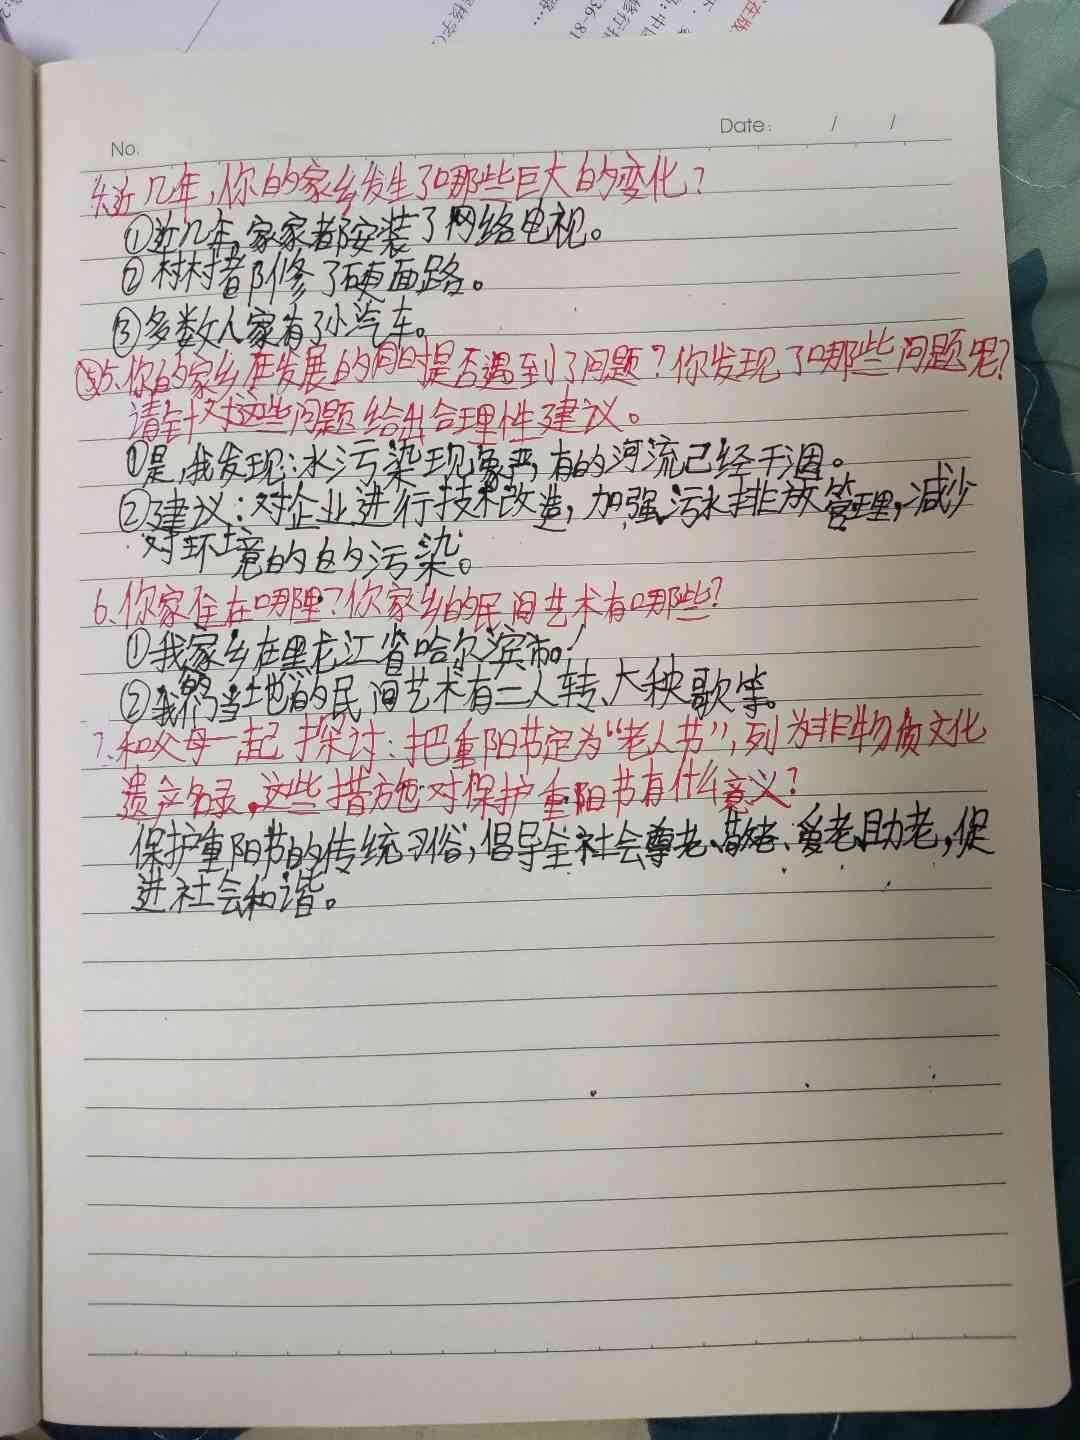 No.
Date: / /
4.近几年,你的家乡发生了哪些巨大的变化?
①近几年,家家都安装了网络电视。
② 村村都修了硬面路。
③多数人家有了小汽车。
5.你的家乡在发展的同时是否遇到了问题?你发现了哪些问题呢?
请针对这些问题给出合理性建议。
①是,我发现:水污染现象严,有的河流已经干涸。
②建议:对企业进行技术改造,加强污水排放管理,减少
对环境的的污染。
6.你家住在哪里?你家乡的民间艺术有哪些?
①我家乡在黑龙江省哈尔滨市。
②我们当地的民间艺术有二人转、大秧歌等。
7.和父母一起探讨:把重阳节定为“老人节”,列为非物质文化
遗产名录,这些措施对保护重阳节有什么意义?
保护重阳节的传统习俗,倡导全社会尊老、敬老、爱老、助老,促
进社会和谐。